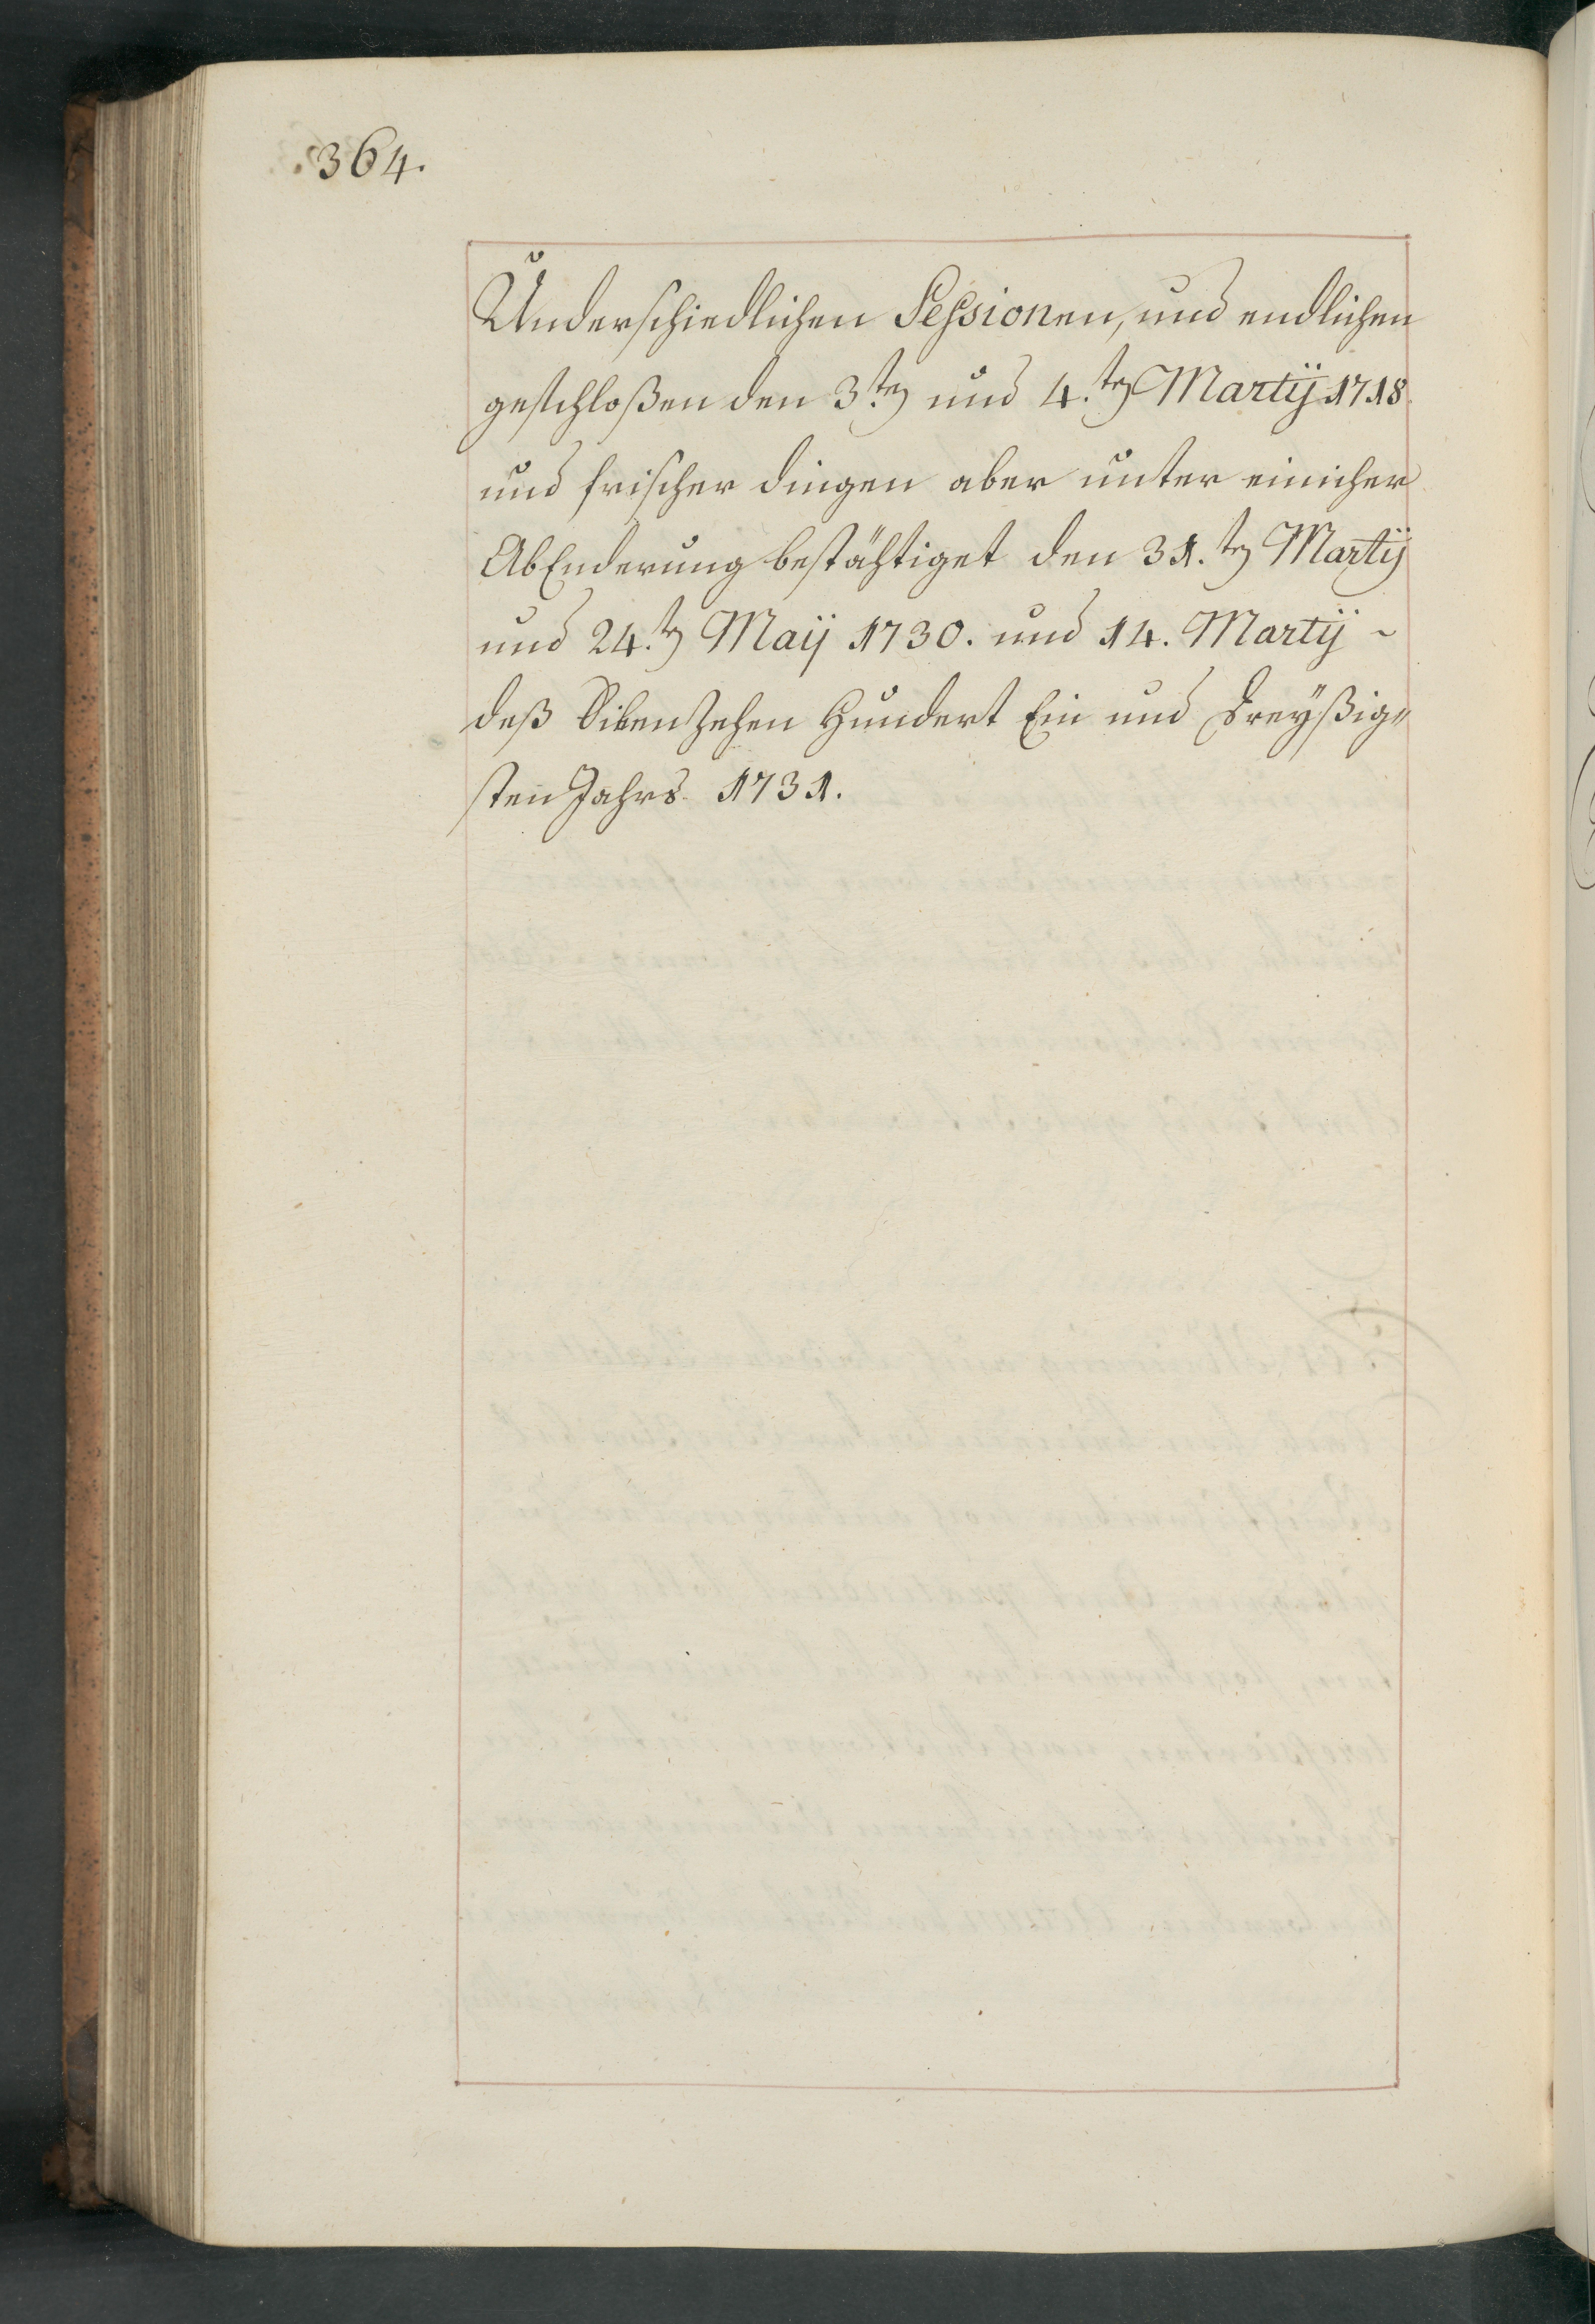 364.
Underschiedlichen Sessionen, und endlichen
geschloßen den 3.ten und 4.ten Martÿ 1718.
und frischer dingen aber unter einicher
AbEnderung bestähtiget den 31.ten Martÿ
und 24.ten Maÿ 1730. und 14. Martÿ ~
deß Sibenzehen Hundert Ein und Dreÿßig„
sten Jahrs 1731.